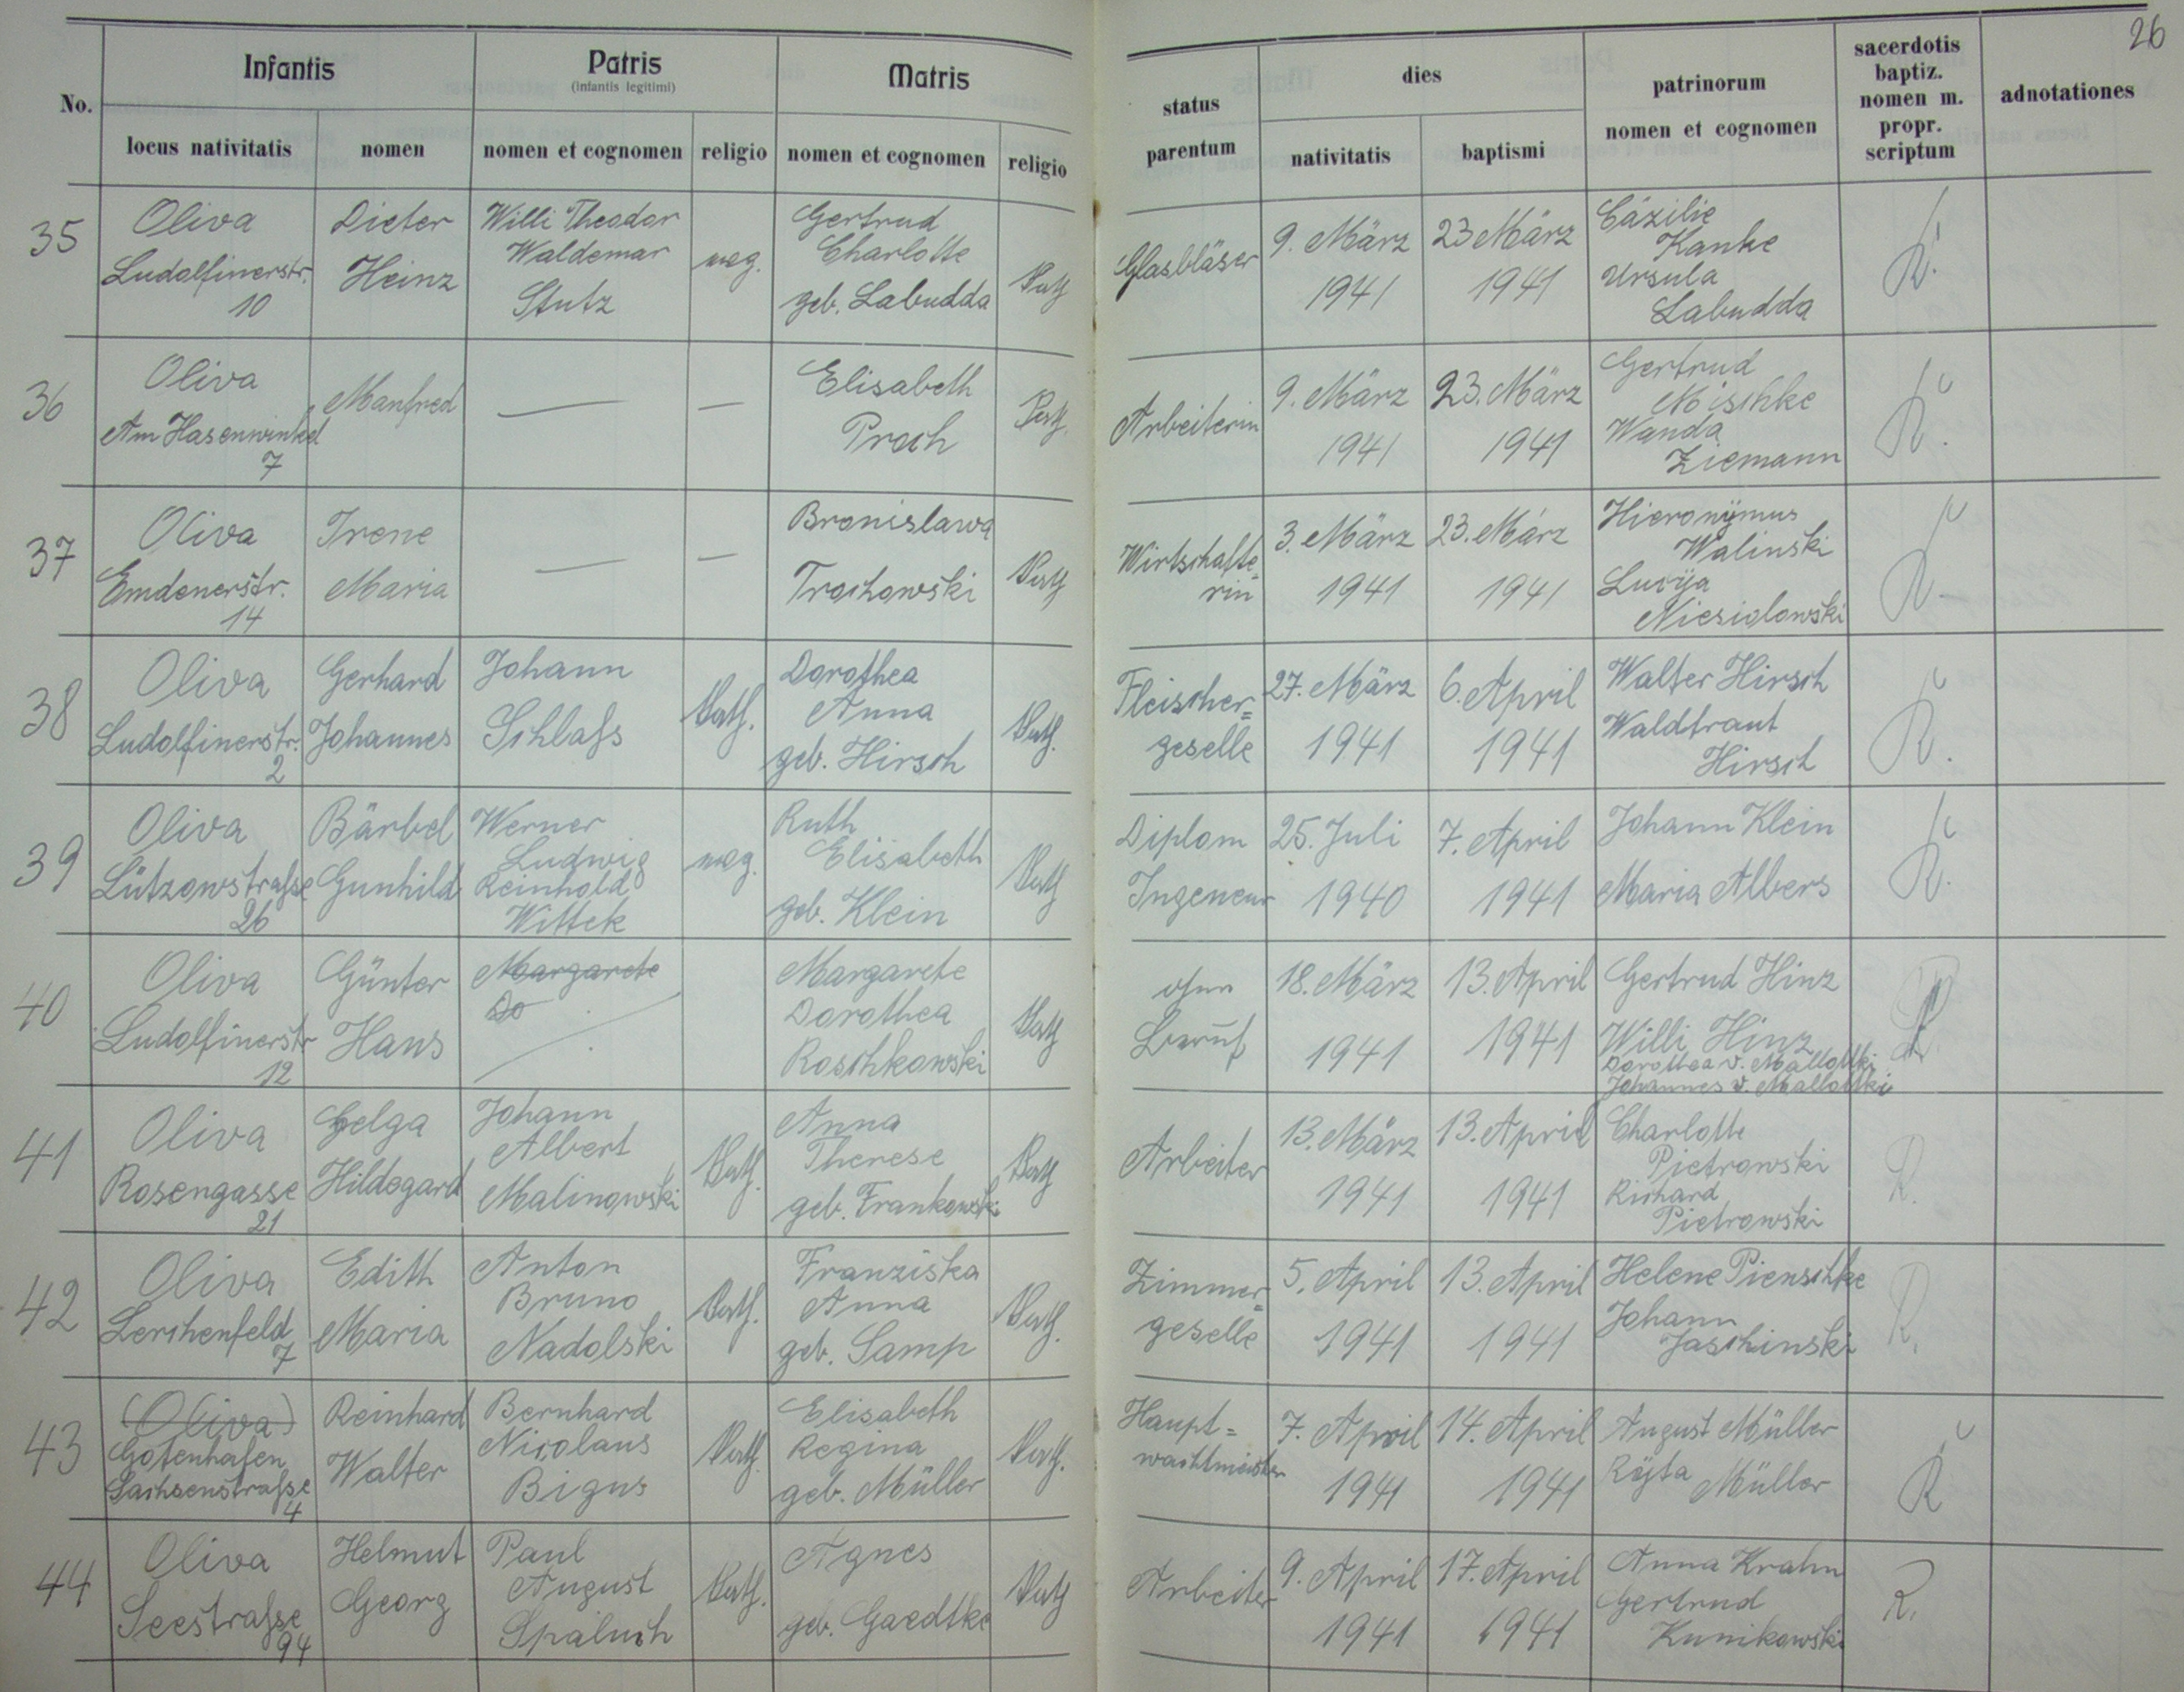 26
Infantis
Patris
(infantis legitimi)
Matris
No.
locus nativitatis
nomen
nomen et cognomen
religio
nomen et cognomen
religio
status
parentum
dies
nativitatis
baptismi
patrinorum
nomen et cognomen
sacerdotis
baptiz.
nomen m.
propr.
scriptum
adnotationes
35
Oliva
Ludolfinerstr.
10
Dieter
Heinz
Willi Theodor
Waldemar
Stutz
Gertrud
Charlotte
geb. Labudda
Kath
Glasbläser
9. März
1941
23 März
1941
Cäzilie
Kanke
Ursula
Labudda
36
Oliva
Am Hasenwinkel
7
Manfred
—
—
Elisabeth
Proch
Kath
Arbeiterin
9. März
1941
23. März
1941
Gertrud
Mischke
Wanda
Ziemann
37
Oliva
Emdenerstr.
14
Irene
Maria
—
—
Bronislawa
Trochowski
Kath
Wirtschafte=
rin
3. März
1941
23. März
1941
Hieronÿmus
Walinski
Luzÿa
Niesiolowski
38
Oliva
Ludolfinerstr.
2
Gerhard
Johannes
Johann
Schlaſs
Kath.
Dorothea
Anna
geb. Hirsch
Kath.
Fleischer=
geselle
27. März
1941
6. April
1941
Walter Hirsch
Waldtraut
Hirsch
39
Oliva
Lützowstraſse
26
Bärbel
Gunhild
Werner
Ludwig
Reinhold
Wittek
Ruth
Elisabeth
geb. Klein
Kath
Diplom
Ingeneur
25. Juli
1940
7. April
1941
Johann Klein
Maria Albers
40
Oliva
Ludolfinerstr
12
Günter
Hans
Margarete
Do
Margarete
Dorothea
Roschkowski
Kath
ohne
Beruf
18. März
1941
13. April
1941
Gertrud Hinz
Willi Hinz
Dorothea v. Mallottki
Johannes v. Mallottki
41
Oliva
Rosengasse
21
Helga
Hildegard
Johann
Albert
Malinowski
Kath.
Anna
Therese
geb. Frankowski
Kath
Arbeiter
13. März
1941
13. April
1941
Charlotte
Pietrowski
Richard
Pietrowski
R.
42
Oliva
Lerchenfeld
7
Edith
Maria
Anton
Bruno
Nadolski
Kath.
Franziska
Anna
geb. Samp
Kath.
Zimmer=
geselle
5. April
1941
13. April
1941
Helene Pienschke
Johann
Jaschinski
R.
43
(Oliva)
Gotenhafen
Sachsenstraſse
4
Reinhard
Walter
Bernhard
Nicolaus
Bigus
Kath.
Elisabeth
Regina
geb. Müller
Kath.
Haupt=
wachtmeister
7. April
1941
14. April
1941
August Müller
Müller
44
Oliva
Seestraſse
94
Helmut
Georg
Paul
August
Spaluch
Kath.
Agnes
geb. Gaedtke
Kath
Arbeiter
9. April
1941
17. April
1941
Anna Krahn
Gertrud
Kunikowski
R.